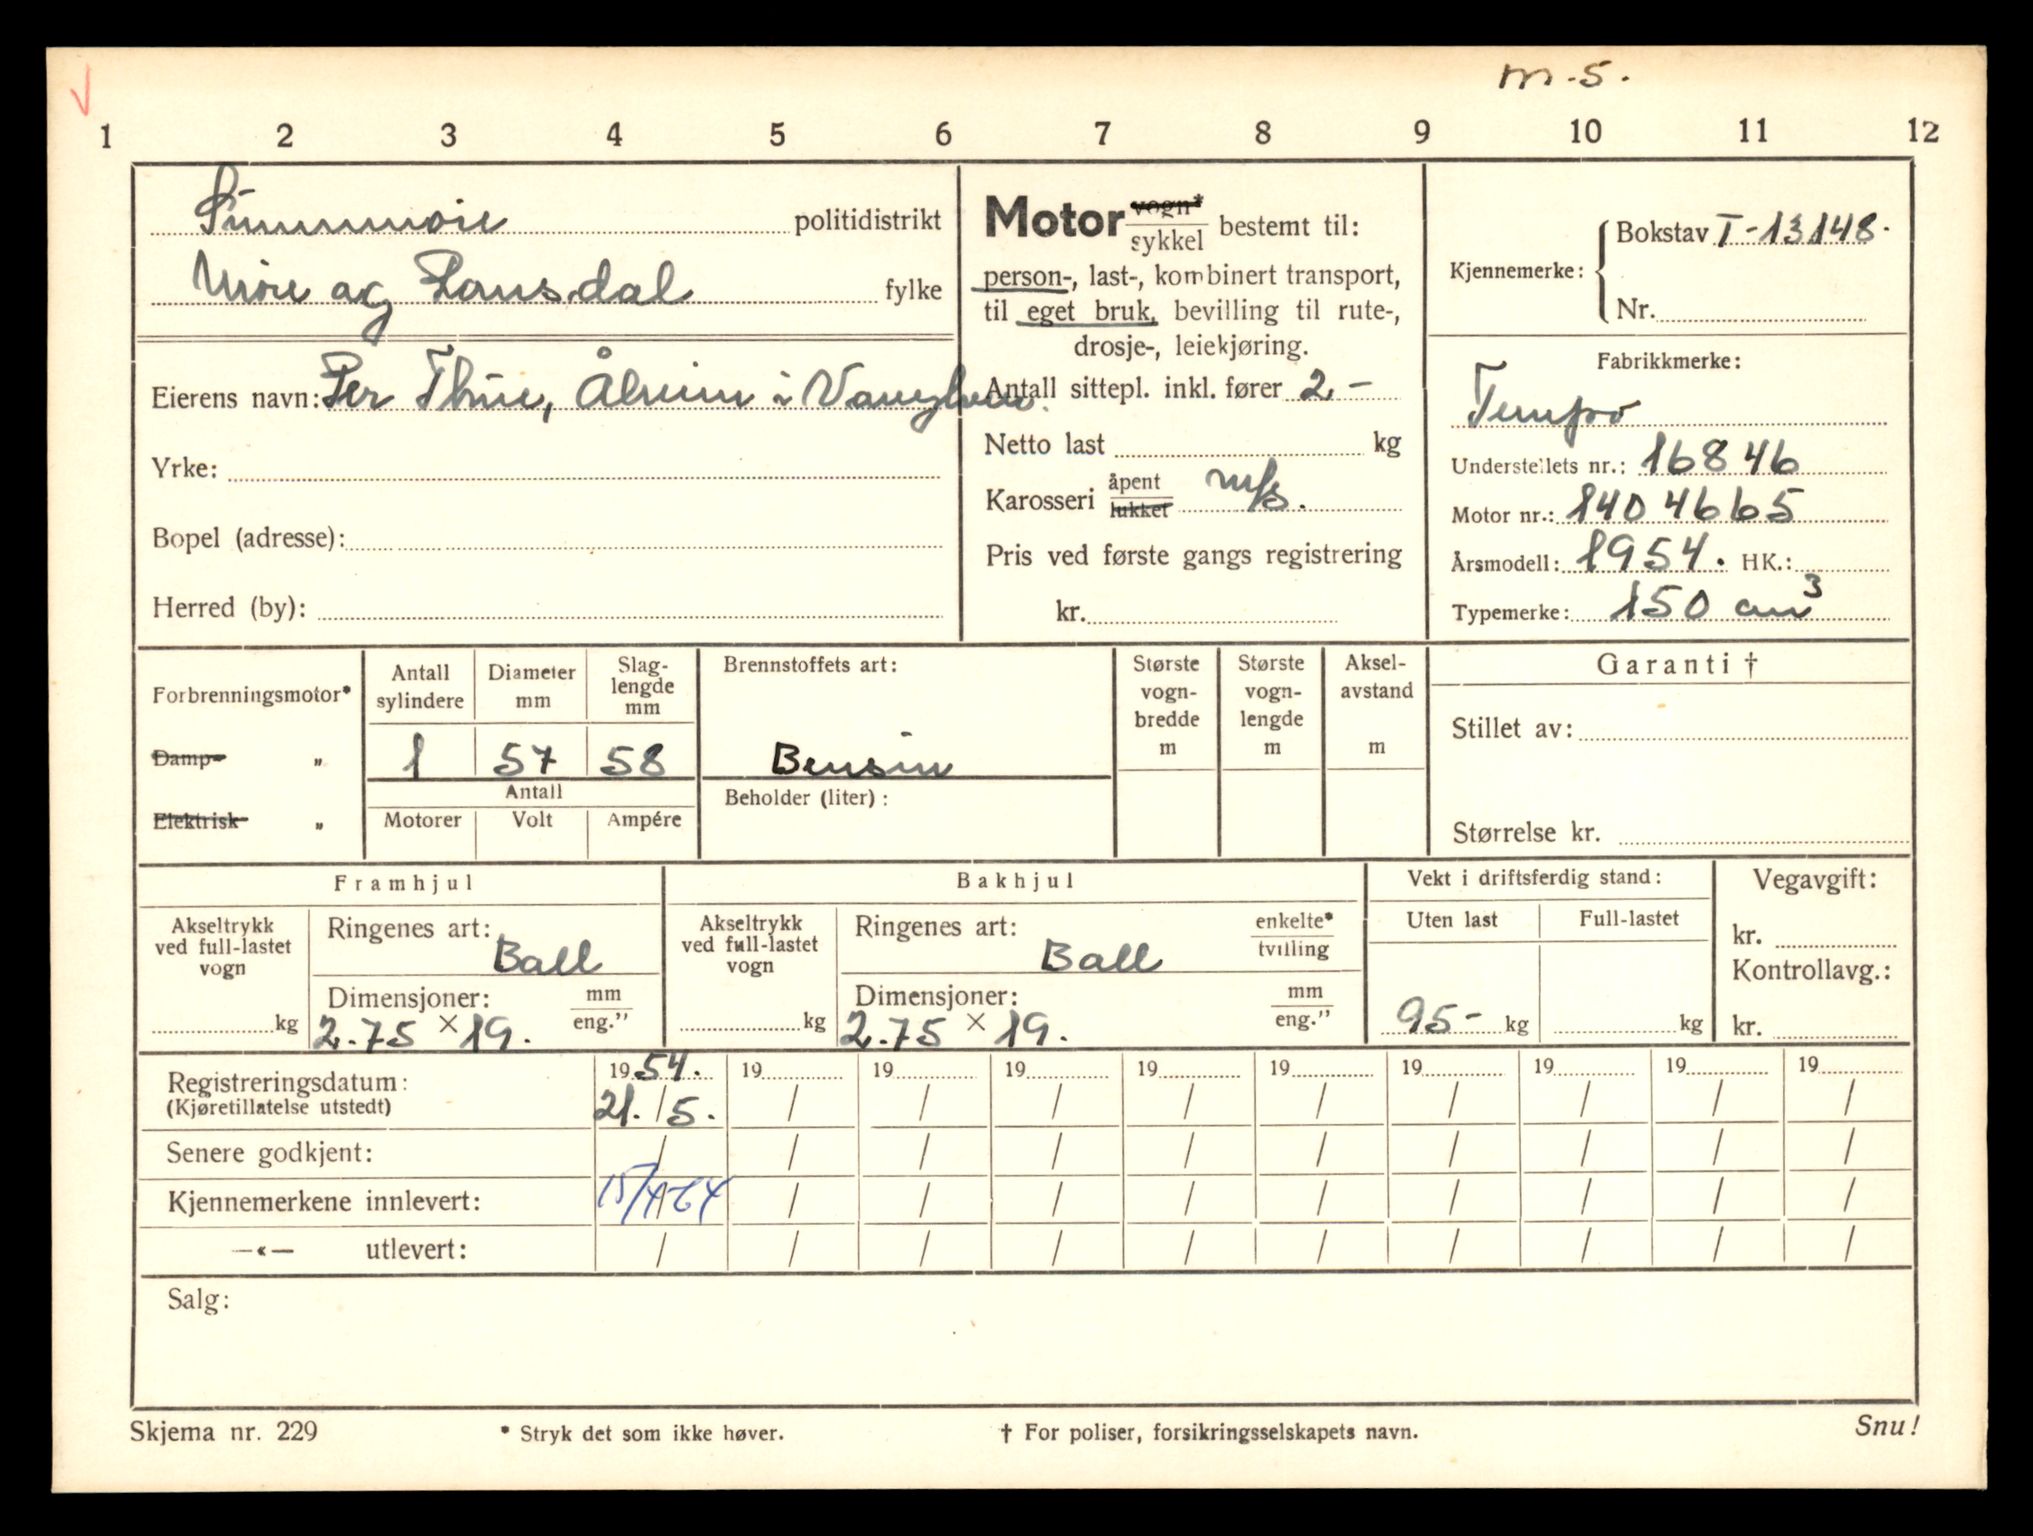 m.5.
1 2 3 4 5 6 7 8 9 10 11 12
Sunnmøre politidistrikt
Møre og Romsdal fylke
Eierens navn: Per Thue, Ålheim i
Yrke:
Bopel (adresse):
Herred (by):
Motor vogn* / sykkel bestemt til:
person-, last-, kombinert transport,
til eget bruk, bevilling til rute-,
drosje-, leiekjøring.
Antall sittepl. inkl. fører 2,-
Netto last kg
Karosseri åpent / lukket m/s.
Pris ved første gangs registrering
kr.
Kjennemerke: Bokstav T-13148.
Nr.
Fabrikkmerke:
Tempo
Understellets nr.: 16846
Motor nr.: 1404665
Årsmodell: 1954. HK.:
Typemerke: 150 cm³
Forbrenningsmotor*
Damp- „
Elektrisk „
Antall sylindere
Diameter mm
Slag-
lengde
mm
1 57 58
Antall
Motorer Volt Ampére
Brennstoffets art:
Bensin
Beholder (liter):
Største
vogn-
bredde
m
Største
vogn-
lengde
m
Aksel-
avstand
m
Garanti †
Stillet av:
Størrelse kr.
Framhjul
Akseltrykk
ved full-lastet
vogn
kg
Ringenes art:
Ball
Dimensjoner: mm / eng.”
2.75 × 19.
Bakhjul
Akseltrykk
ved full-lastet
vogn
kg
Ringenes art: enkelte* / tvilling
Ball
Dimensjoner: mm / eng.”
2.75 × 19.
Vekt i driftsferdig stand:
Uten last Full-lastet
95- kg kg
Vegavgift:
kr.
Kontrollavg.:
kr.
Registreringsdatum: 1954. 19 19 19 19 19 19 19 19 19
(Kjøretillatelse utstedt) 21. / 5. / / / / / / / / /
Senere godkjent: / / / / / / / / / /
Kjennemerkene innlevert: 15/4-64 / / / / / / / / /
—«— utlevert: / / / / / / / / / /
Salg:
Skjema nr. 229 * Stryk det som ikke høver. † For poliser, forsikringsselskapets navn. Snu!